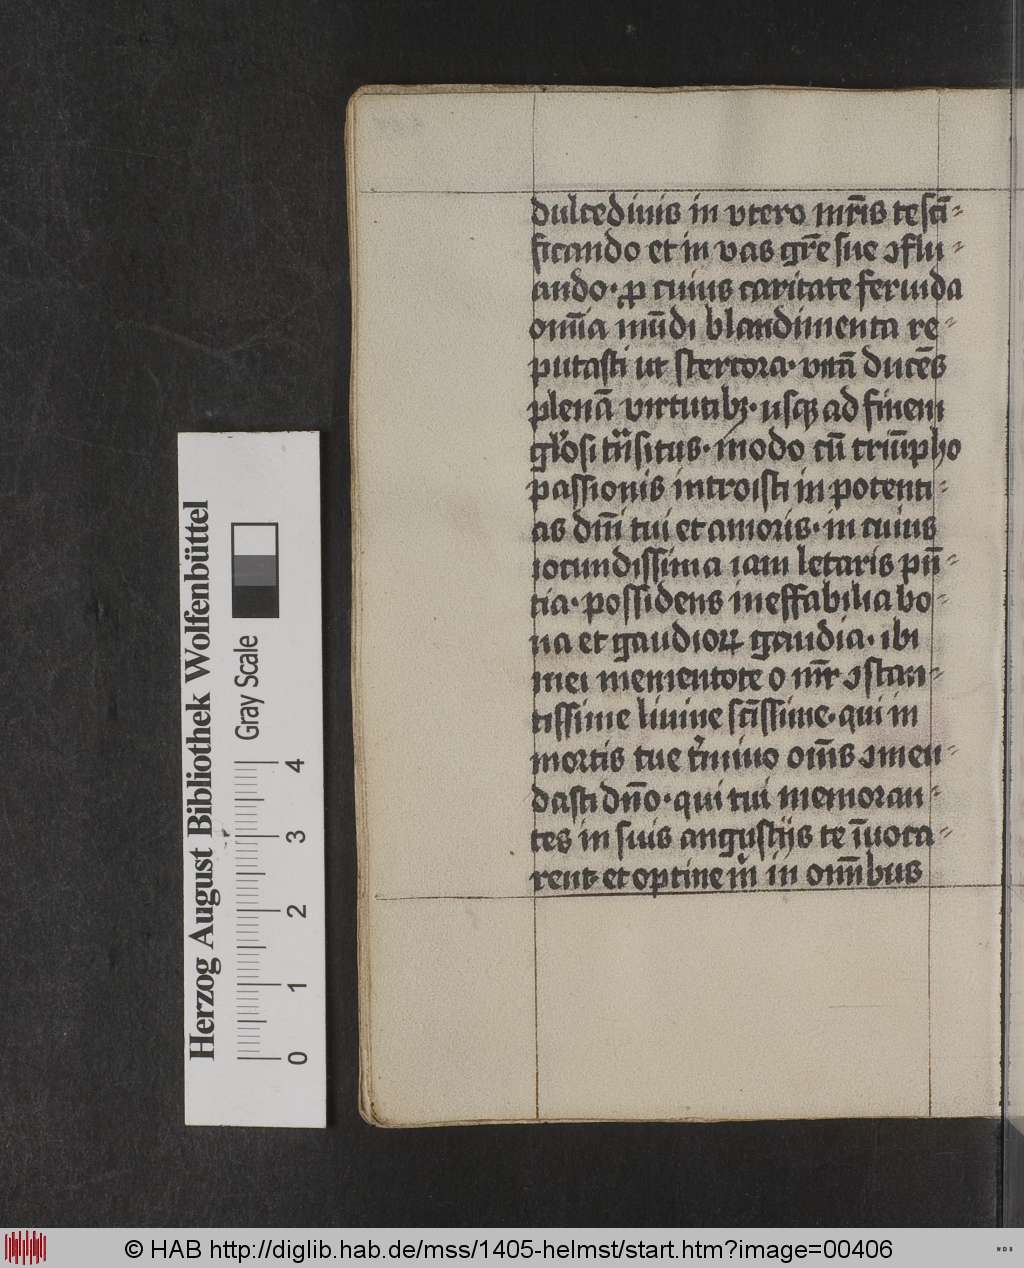 dulcedinis in vtero mr̄is te scī-
ficando et in vas gr̄e sue ↄflu-
ando· ꝓ cuius caritate feruida
om̄ia mūdi blandimenta re-
putasti ut stercora· vitā ducēs
plenā virtutibꝫ· usqꝫ ad finem
gl̓osi trāsitus· modo cū triūpho
passionis introisti in potenti-
as dn̄i tui et amoris· in cuius
iocundissima iam letaris pn̄-
tia· possidens ineffabilia bo-
na et gaudioꝝ gaudia· ibi
mei mementote o mr̄ ↄstan-
tissime liuine sc̄issime· qui in
mortis tue t̓mino om̄s ↄmen-
dasti dn̄o· qui tui memoran-
tes in suis angustijs te īuoca-
rent· et optine m̓ in om̄ibus
Herzog August Bibliothek Wolfenbüttel
Gray Scale
0 1 2 3 4
© HAB http://diglib.hab.de/mss/1405-helmst/start.htm?image=00406
WDB